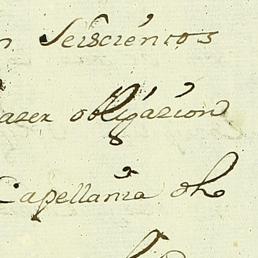 n Seiscientos
azer obligazion
Capellania dho